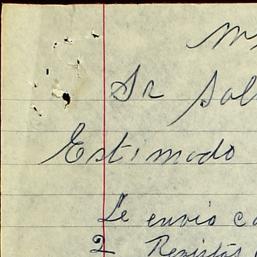 Sr Sal
Estimado
Le envio co
2 Revistas